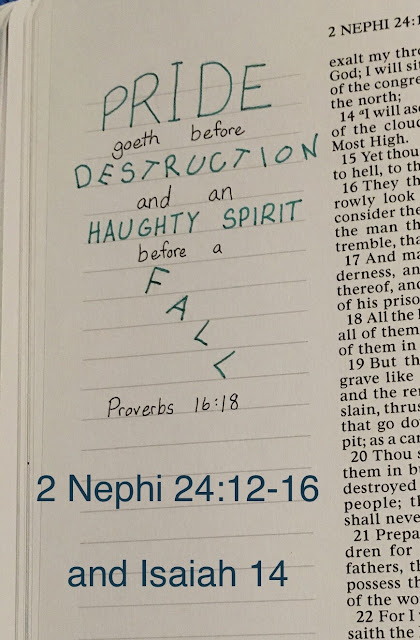 PRIDE
goeth before
DESTRUCTION
and an
HAUGHTY SPIRIT
before a
FALL
Proverbs 16:18
2 Nephi 24:12-16
and Isaiah 14
2 NEPHI 24:1
exalt my thr
God; I will sit
of the congre
the north;
14 aI will asc
of the cloud
Most High.
15 Yet thou
to hell, to th
16 They th
rowly look
consider the
the man th
tremble, tha
17 And ma
derness, an
thereof, and
of his priso
18 All the
all of them
of them in
19 But th
grave like
and the re
slain, thrus
that go do
pit; as a car
20 Thou
them in bu
destroyed
people; th
shall neve
21 Prepa
dren for
fathers, th
possess th
of the wo
22 For I
saith the